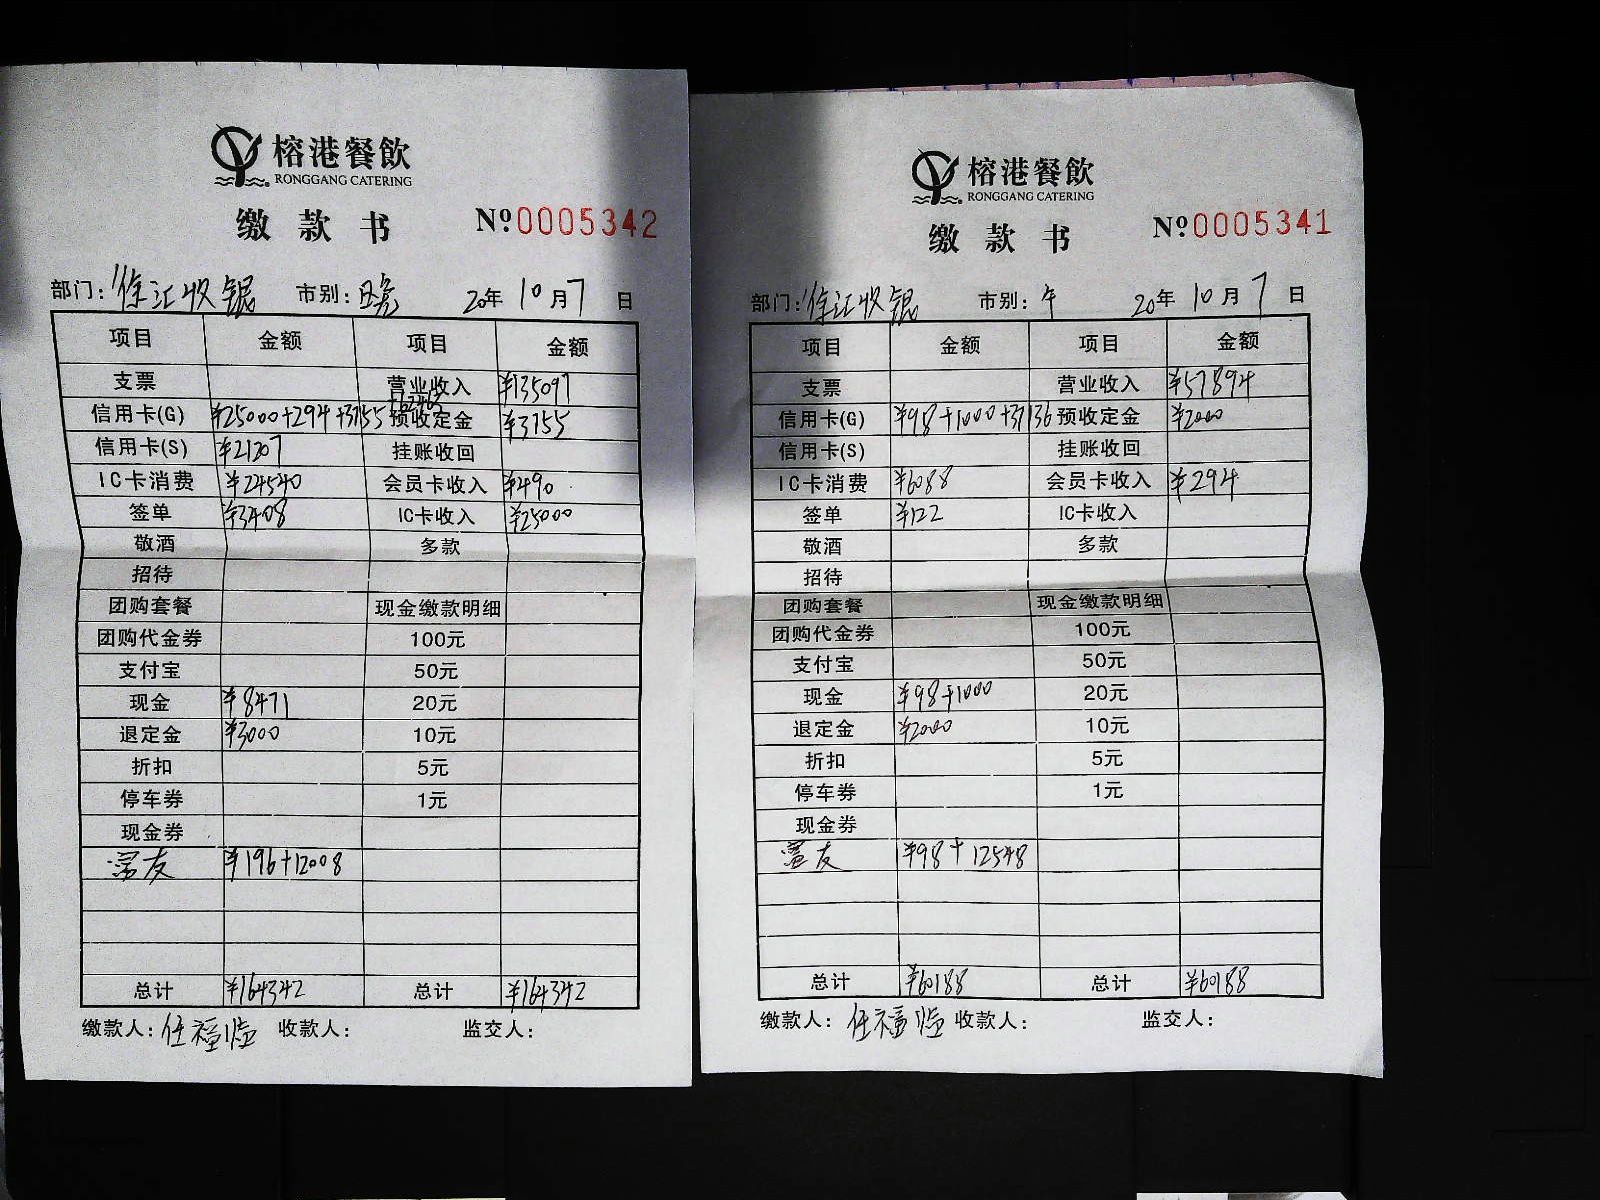 榕港餐飲
RONGGANG CATERING
缴款书 №0005342
部门:徐汇收银 市别:晚 20年10月7日
项目 金额 项目 金额
支票 营业收入 ¥135097
信用卡(G) ¥25000+294+3755 预收定金 ¥3755
信用卡(S) ¥21207 挂账收回
IC卡消费 ¥24540 会员卡收入 ¥490
签单 ¥3408 IC卡收入 ¥25000
敬酒 多款
招待
团购套餐 现金缴款明细
团购代金券 100元
支付宝 50元
现金 ¥8471 20元
退定金 ¥3000 10元
折扣 5元
停车券 1元
现金券
¥196+12008
总计 ¥164342 总计 ¥164342
缴款人:任福临 收款人: 监交人:
榕港餐飲
RONGGANG CATERING
缴款书 №0005341
部门:徐汇收银 市别:午 20年10月7日
项目 金额 项目 金额
支票 营业收入 ¥57894
信用卡(G) ¥98+1000+37136 预收定金 ¥2000
信用卡(S) 挂账收回
IC卡消费 ¥6088 会员卡收入 ¥294
签单 ¥122 IC卡收入
敬酒 多款
招待
团购套餐 现金缴款明细
团购代金券 100元
支付宝 50元
现金 ¥98+1000 20元
退定金 ¥2000 10元
折扣 5元
停车券 1元
现金券
¥98+12548
总计 ¥60188 总计 ¥60188
缴款人:任福临 收款人: 监交人: